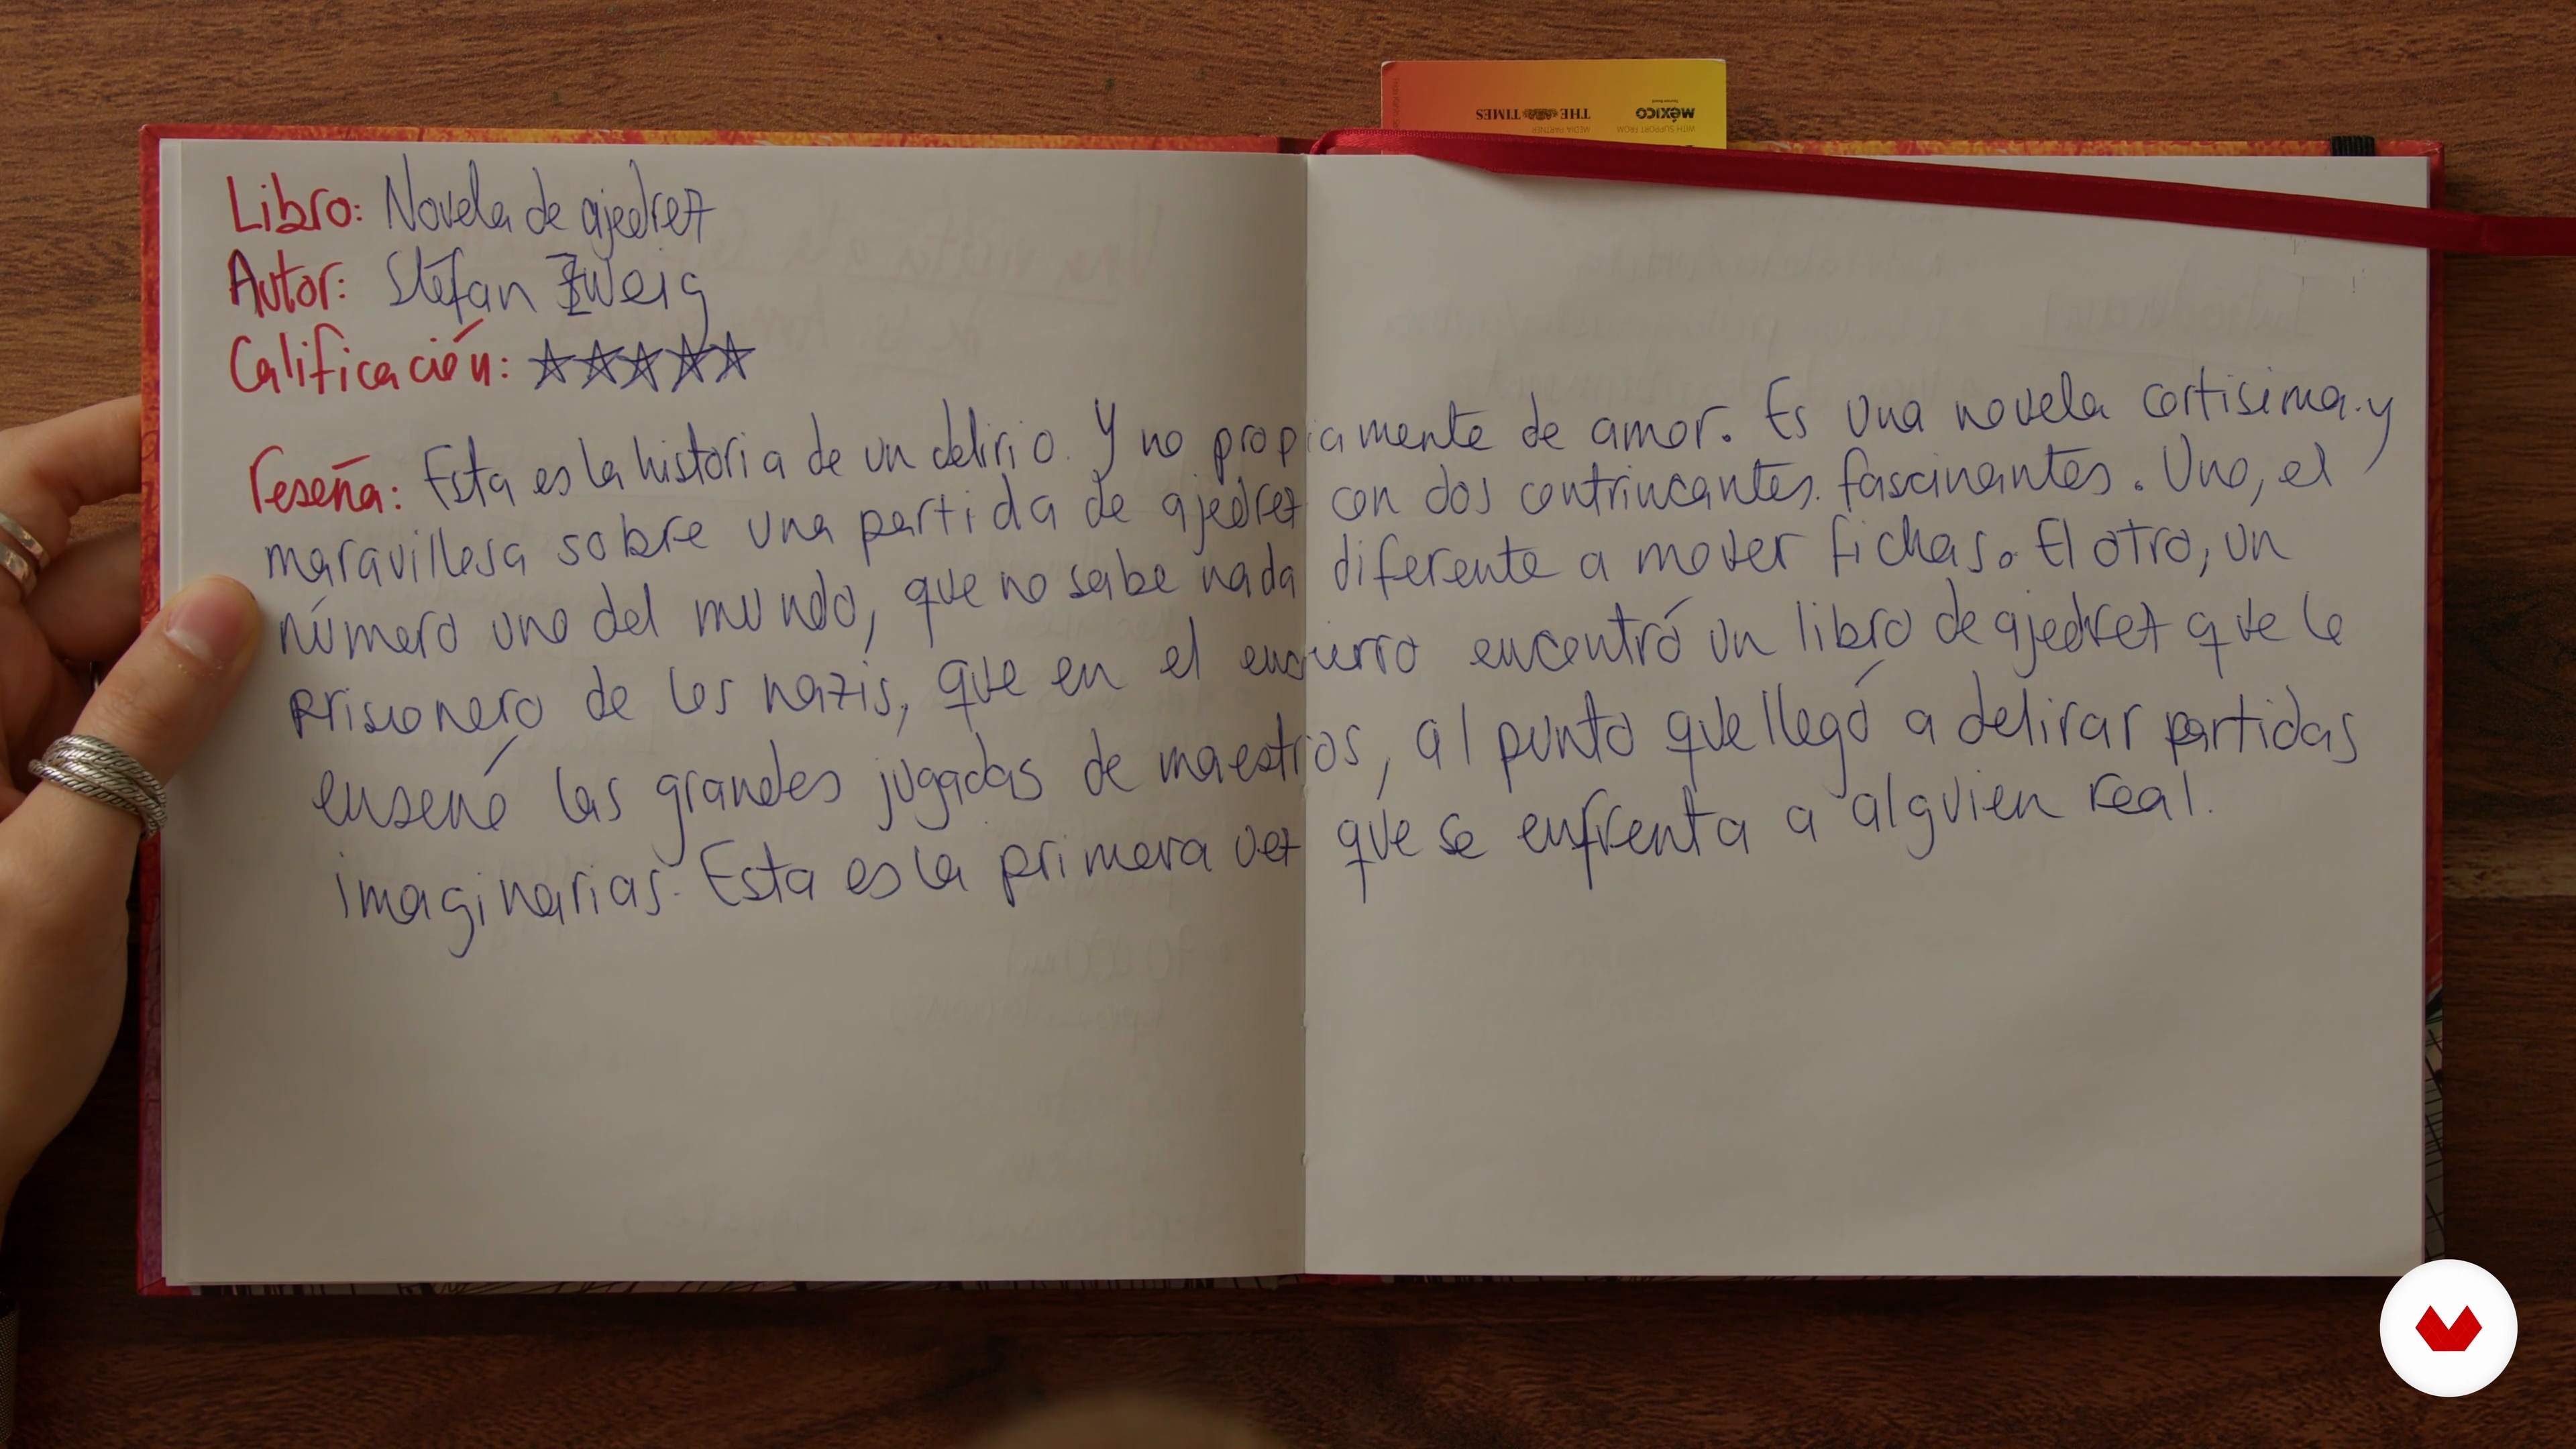 THE TIMES
MEDIA PARTNER
méxico
WITH SUPPORT FROM
Libro: Novela de ajedrez
Autor: Stefan Zweig
Calificación: ☆☆☆☆☆
reseña: Esta es la historia de un delirio. Y no propiamente de amor. Es una novela cortisima y
maravillosa sobre una partida de ajedrez con dos contrincantes fascinantes. Uno, el
número uno del mundo, que no sabe nada diferente a mover fichas. El otro, un
prisionero de los nazis, que en el encierro encontró un libro de ajedrez que le
enseñó las grandes jugadas de maestros, al punto que llegó a delirar partidas
imaginarias. Esta es la primera vez que se enfrenta a alguien real.